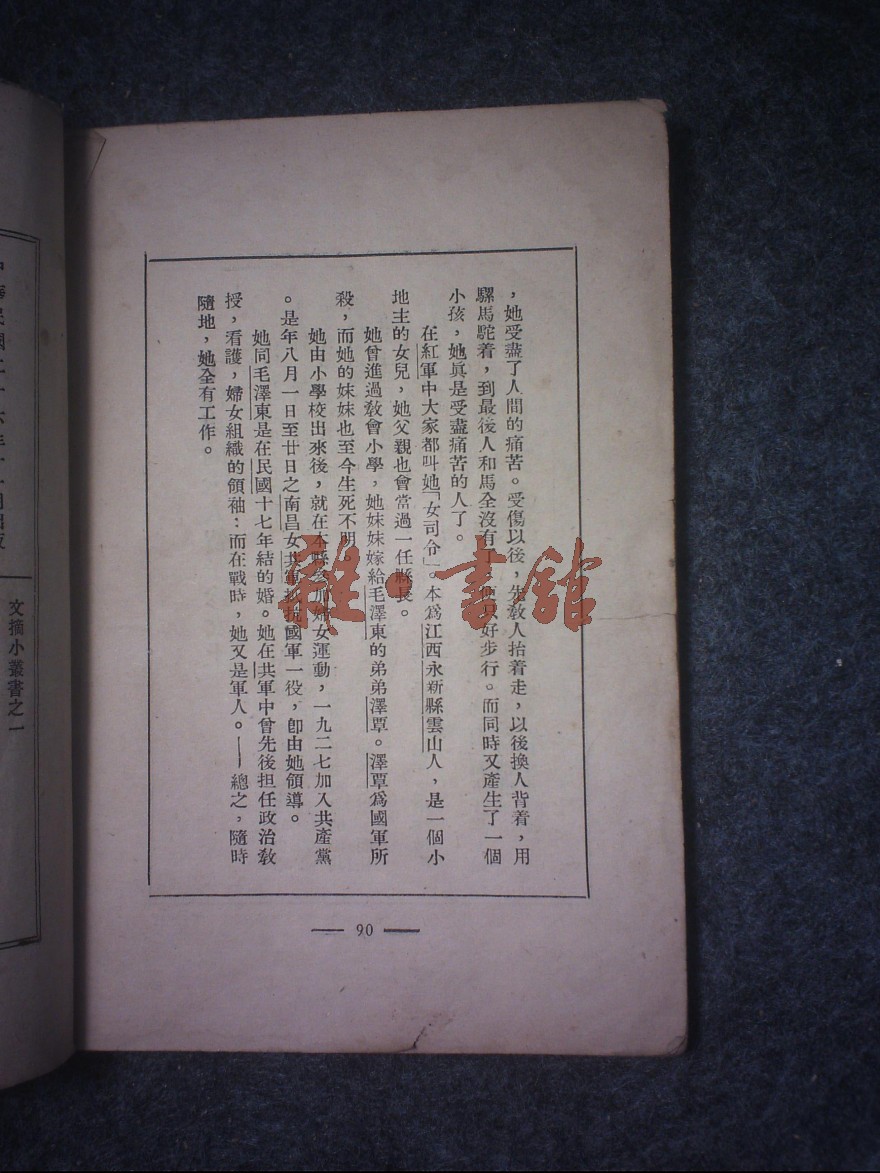 ，她受盡了人間的痛苦。受傷以後，先教人抬着走，以後換人背着，用
騾馬駝着，到最後人和馬全沒有了，便只好步行。而同時又產生了一個
小孩，她眞是受盡痛苦的人了。
在紅軍中大家都叫她「女司令」。本爲江西永新縣雲山人，是一個小
地主的女兒，她父親也會當過一任縣長。
她曾進過敎會小學，她妹妹嫁給毛澤東的弟弟澤覃。澤覃爲國軍所
殺，而她的妹妹也至今生死不明。
她由小學校出來後，就在本縣參加婦女運動，一九二七加入共產黨
。是年八月一日至廿日之南昌女共軍抵抗國軍一役，卽由她領導。
她同毛澤東是在民國十七年結的婚。她在共軍中曾先後担任政治敎
授，看護，婦女組織的領袖：而在戰時，她又是軍人。——總之，隨時
隨地，她全有工作。
— 90 —
文摘小叢書之一
雜·書館